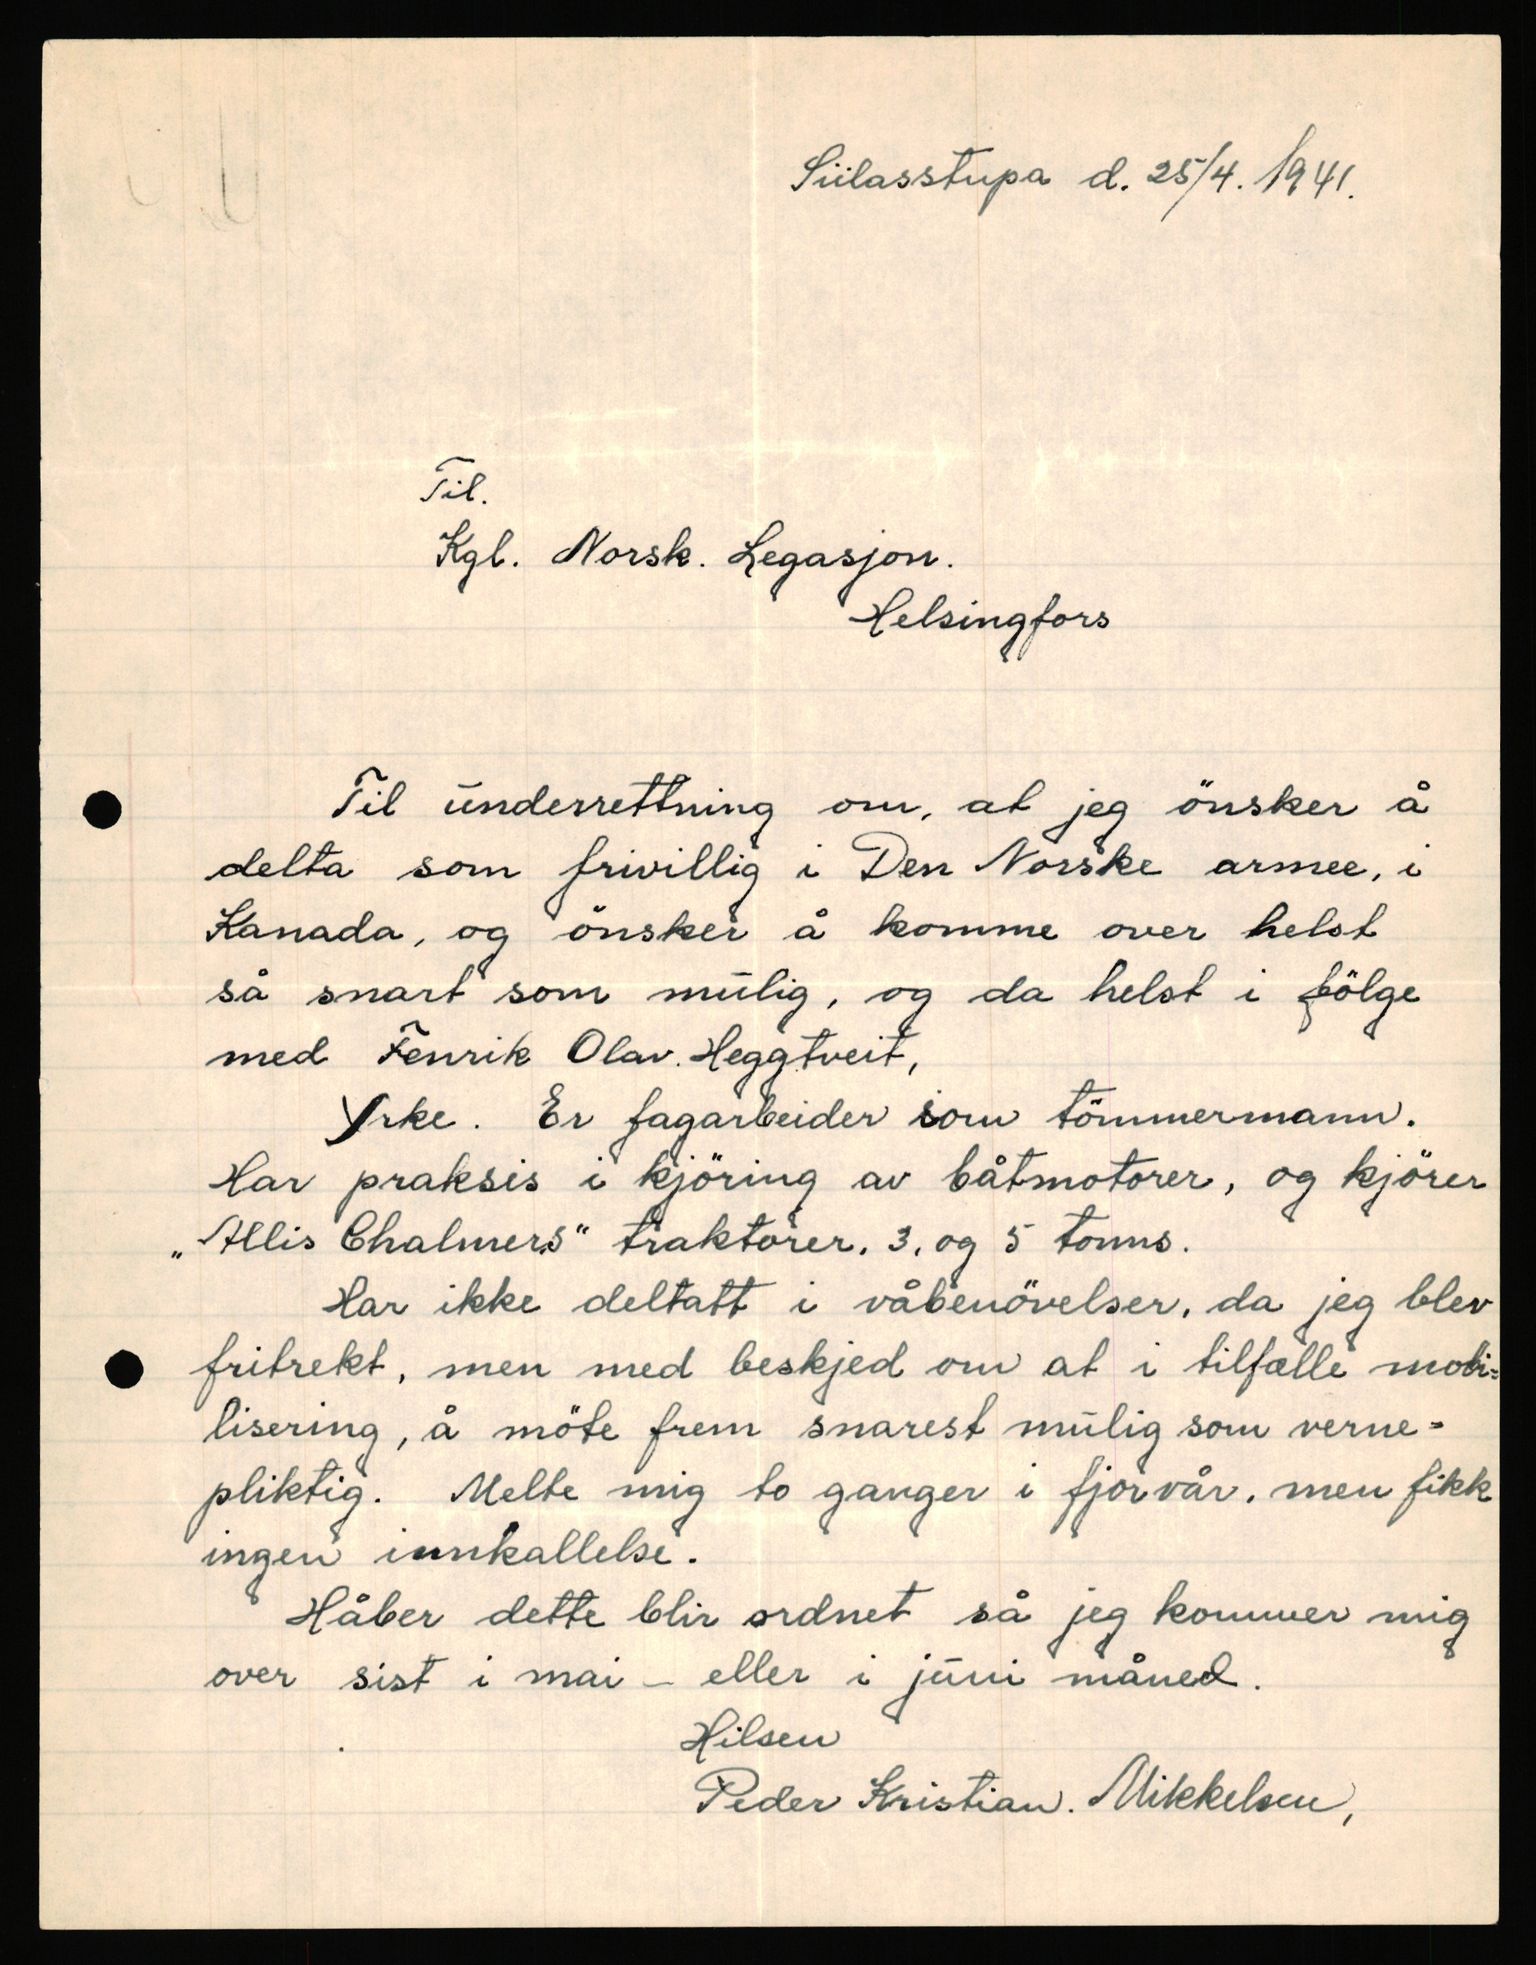 Siilasstupa d. 25/4. 1941.
Til.
Kgl. Norsk. Legasjon.
Helsingfors
Til underrettning om, at jeg önsker å
delta som frivillig i Den Norske armee, i
Kanada, og önsker å komme over helst
så snart som mulig, og da helst i fölge
med Fenrik Olav. Heggtveit,
Yrke. Er fagarbeider som tömmermann.
Har praksis i kjöring av båtmotorer, og kjörer
„Allis Chalmers" traktorer, 3, og 5 tonns.
Har ikke deltatt i våbenövelser, da jeg blev
fritrekt, men med beskjed om at i tilfælle mobi=
lisering, å möte frem snarest mulig som verne=
pliktig. Melte mig to ganger i fjorvår, men fikk
ingen innkallelse.
Håber dette blir ordnet så jeg kommer mig
over sist i mai - eller i juni måned.
Hilsen
Peder Kristian. Mikkelsen,